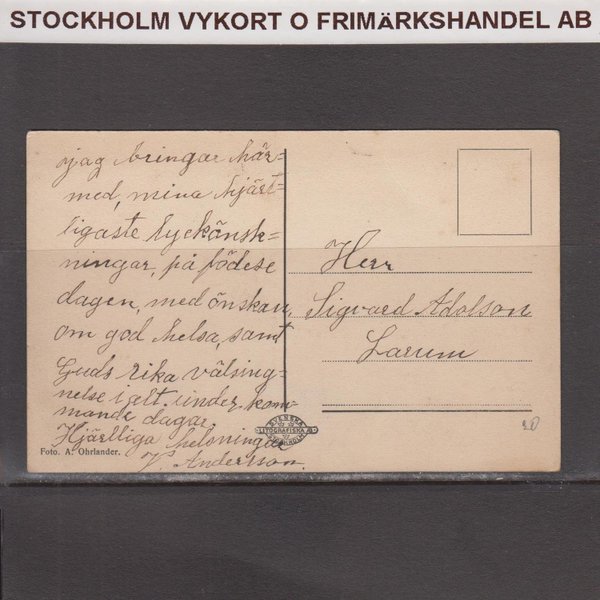 STOCKHOLM VYKORT O FRIMÄRKSHANDEL AB
jag bringar här=
med, mina hjärt=
ligaste lyckönsk=
ningar, på födese
dagen, med önskan,
om god helsa, samt
Guds rika välsing=
nelse i allt. under, kom=
mande dagar,
Hjärlliga helsningar
V. Andersson.
Foto. A. Ohrlander.
SVENSKA
LITOGRAFISKA AB
STOCKHOLM
Herr
Sigvard Adolson
Larum
20